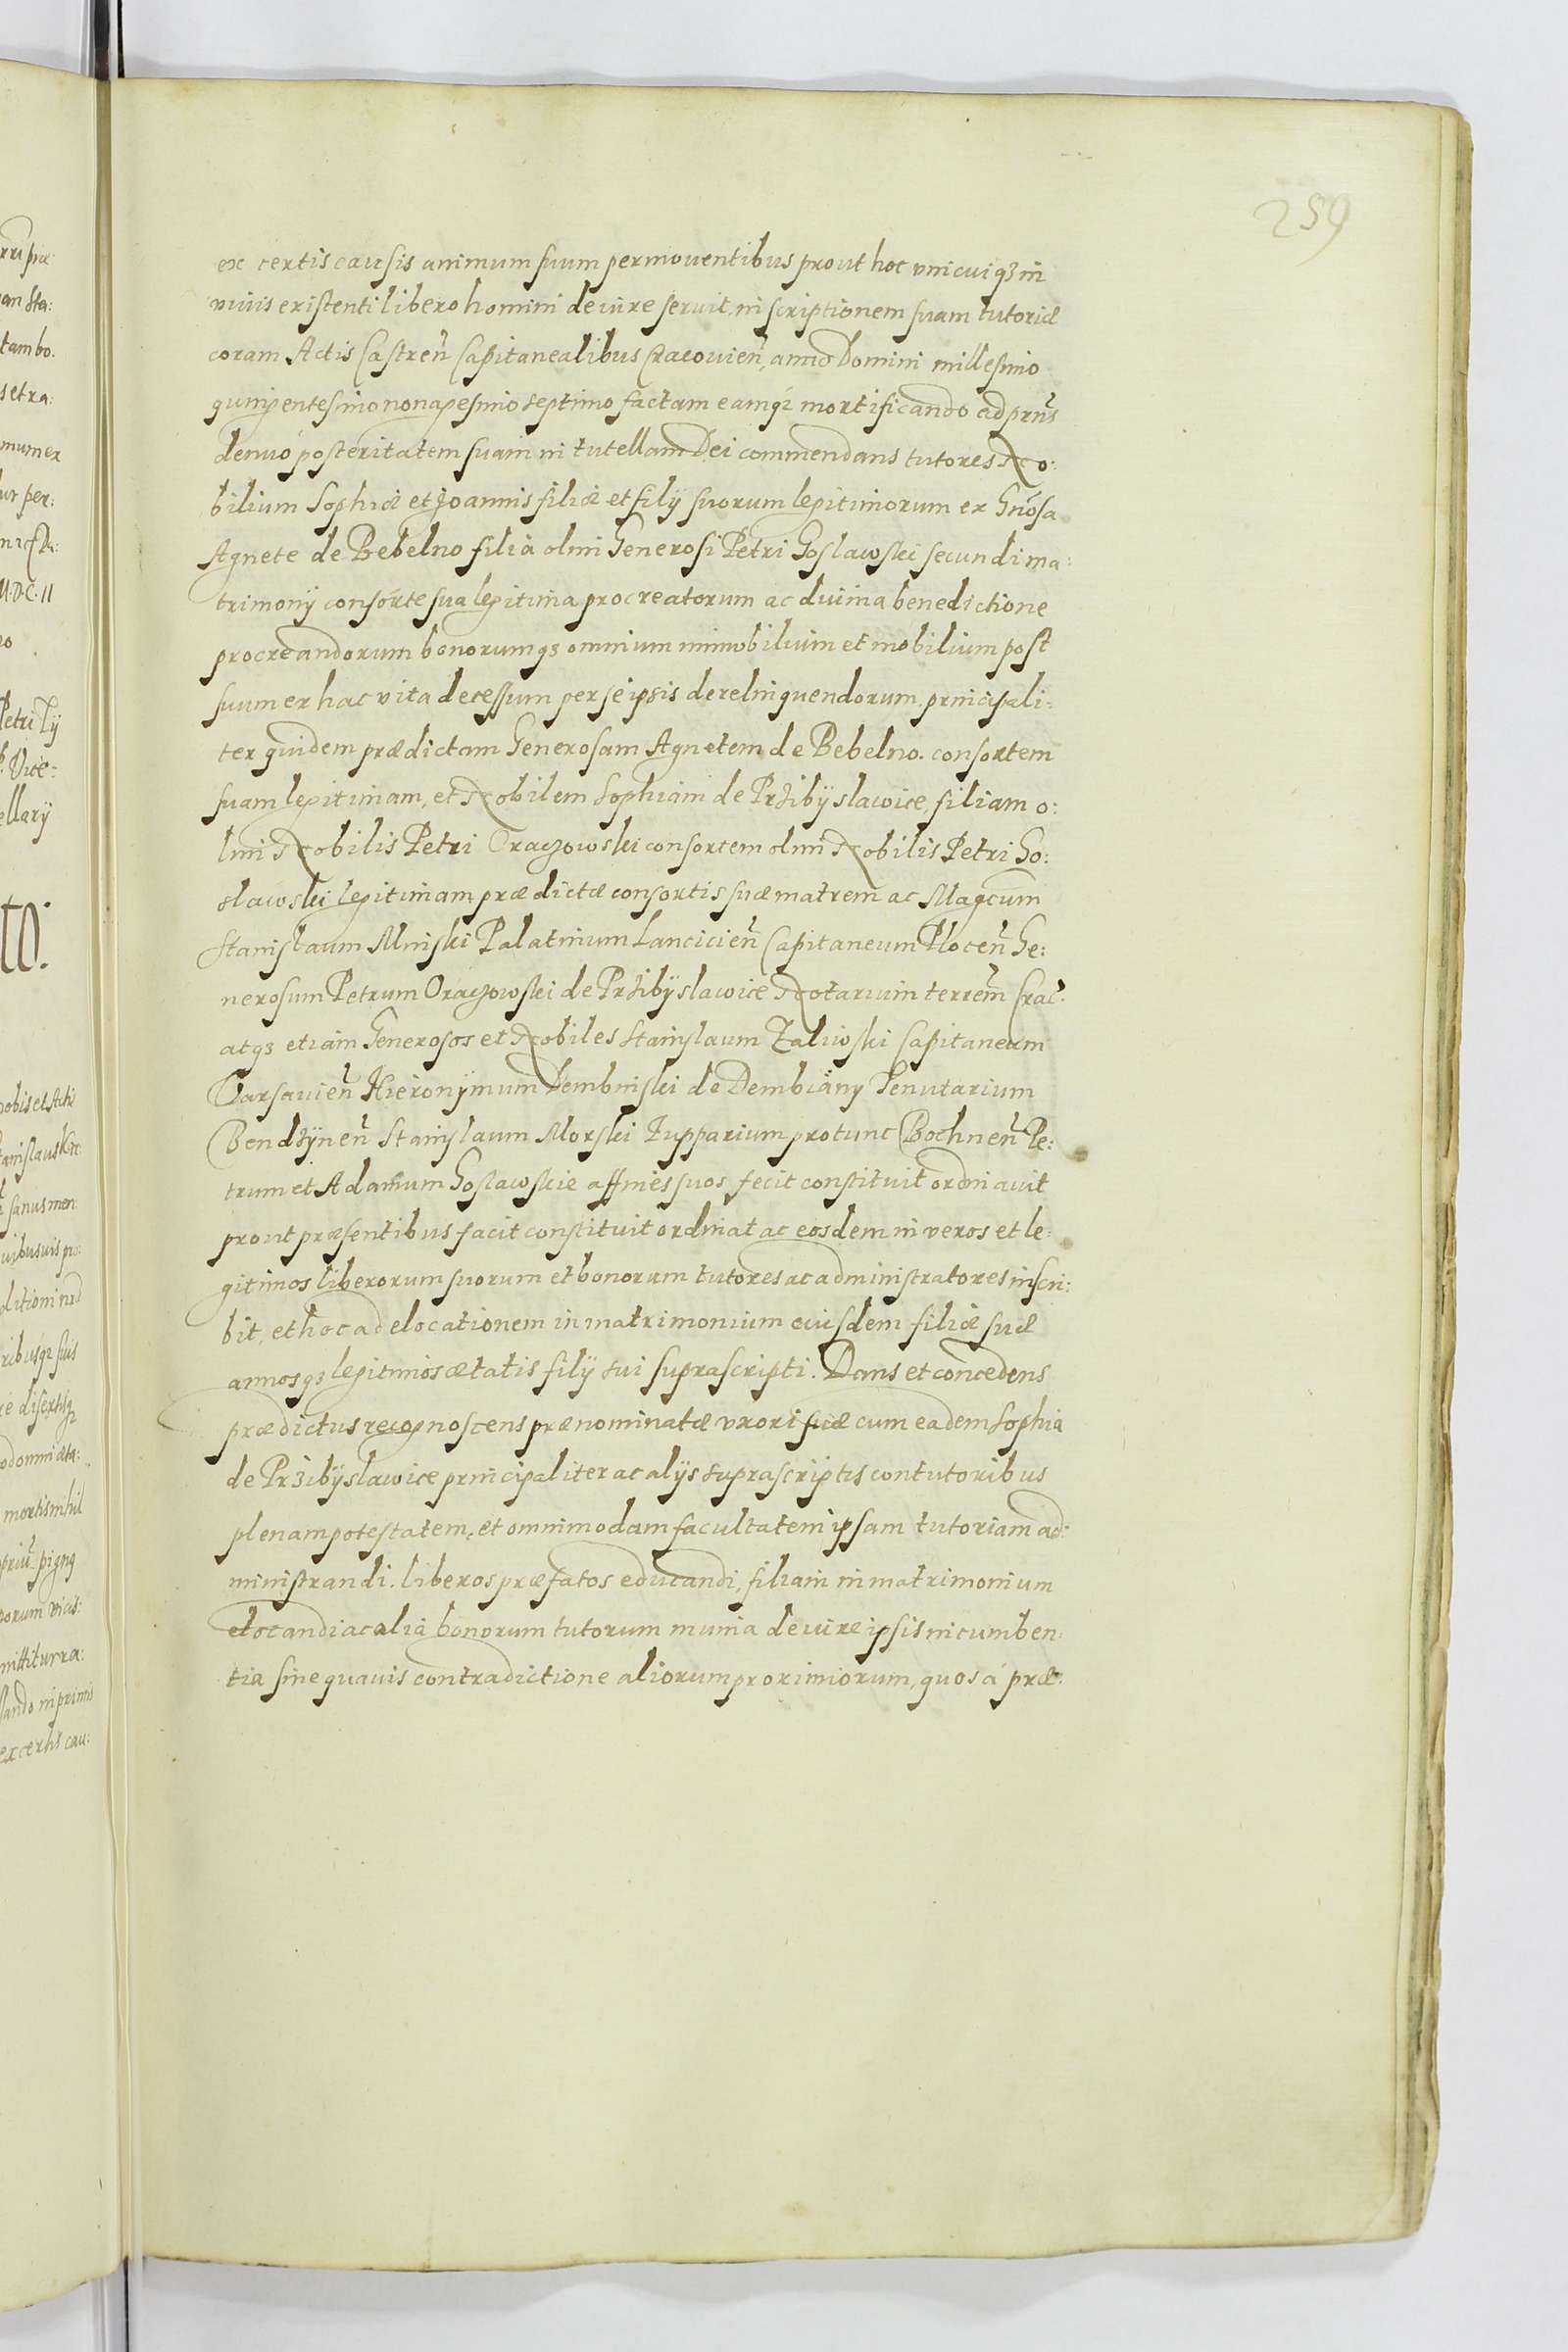 259
ex certis causis animum suum permouentibus prout hoc vnicuiqꝫ in
viuis existenti libero homini de iure seruit, inscriptionem suam tutoriæ
coram Actis Castreñ Capitanealibus Cracouieñ, anno Domini millesimo
quingentesimo nonagesimo septimo factam eamqꝫ mortificando ad prñs
denuó posteritatem suam in tutellam Dei commendans tutores No:
bilium Sophiæ et Joannis filiæ et filÿ suorum legitimorum ex Gñosa
Agnete de Bebelno filia olim Generosi Petri Goslawski secundi ma:
trimonÿ consorte sua legitima procreatorum ac diuina benedictione
procreandorum bonorumqꝫ omnium immobilium et mobilium post
suum ex hac vita decessum per se ipsis derelinquendorum, principali:
ter quidem prædictam Generosam Agnetem de Bebelno. consortem
suam legitimam, et Nobilem Sophiam de Przibÿslawice, filiam o:
lim Nobilis Petri Oraczowski consortem olim Nobilis Petri Go:
slawski legitimam, prædictæ consortis suæ matrem ac Magcum
Stanislaum Minski Palatinum Lancicieñ Capitaneum Ploceñ Ge:
nerosum Petrum Oraczowski de Przibÿslawice Notarium terreñ Crac:
atqꝫ etiam Generosos et Nobiles Stanislaum Zaliwski Capitaneum
Varsauieñ Hieronÿmum Dembinski de Dembiany Tenutarium
Bendzÿneñ Stanislaum Morski Zupparium protunc Bochneñ Pe:
trum et Adamum Goslawskie affines suos fecit constituit ordinauit
prout præsentibus facit constituit ordinat ac eosdem in veros et le:
gitimos liberorum suorum et bonorum tutores ac administratores inscri:
bit, et hoc ad elocationem in matrimonium eiusdem filiæ suæ
annosqꝫ legitimos ætatis filÿ sui suprascripti. Dans et concedens
prædictus recognoscens prænominatæ vxori suæ cum eadem Sophia
de Przibÿslawice principaliter ac alÿs suprascriptis contutoribus
plenam potestatem, et omnimodam facultatem ipsam tutoriam ad:
ministrandi. liberos præfatos educandi, filiam in matrimonium
elocandi ac alia bonorum tutorum munia de iure ipsis incumben:
tia sine quauis contradictione aliorum proximiorum, quos á præ: